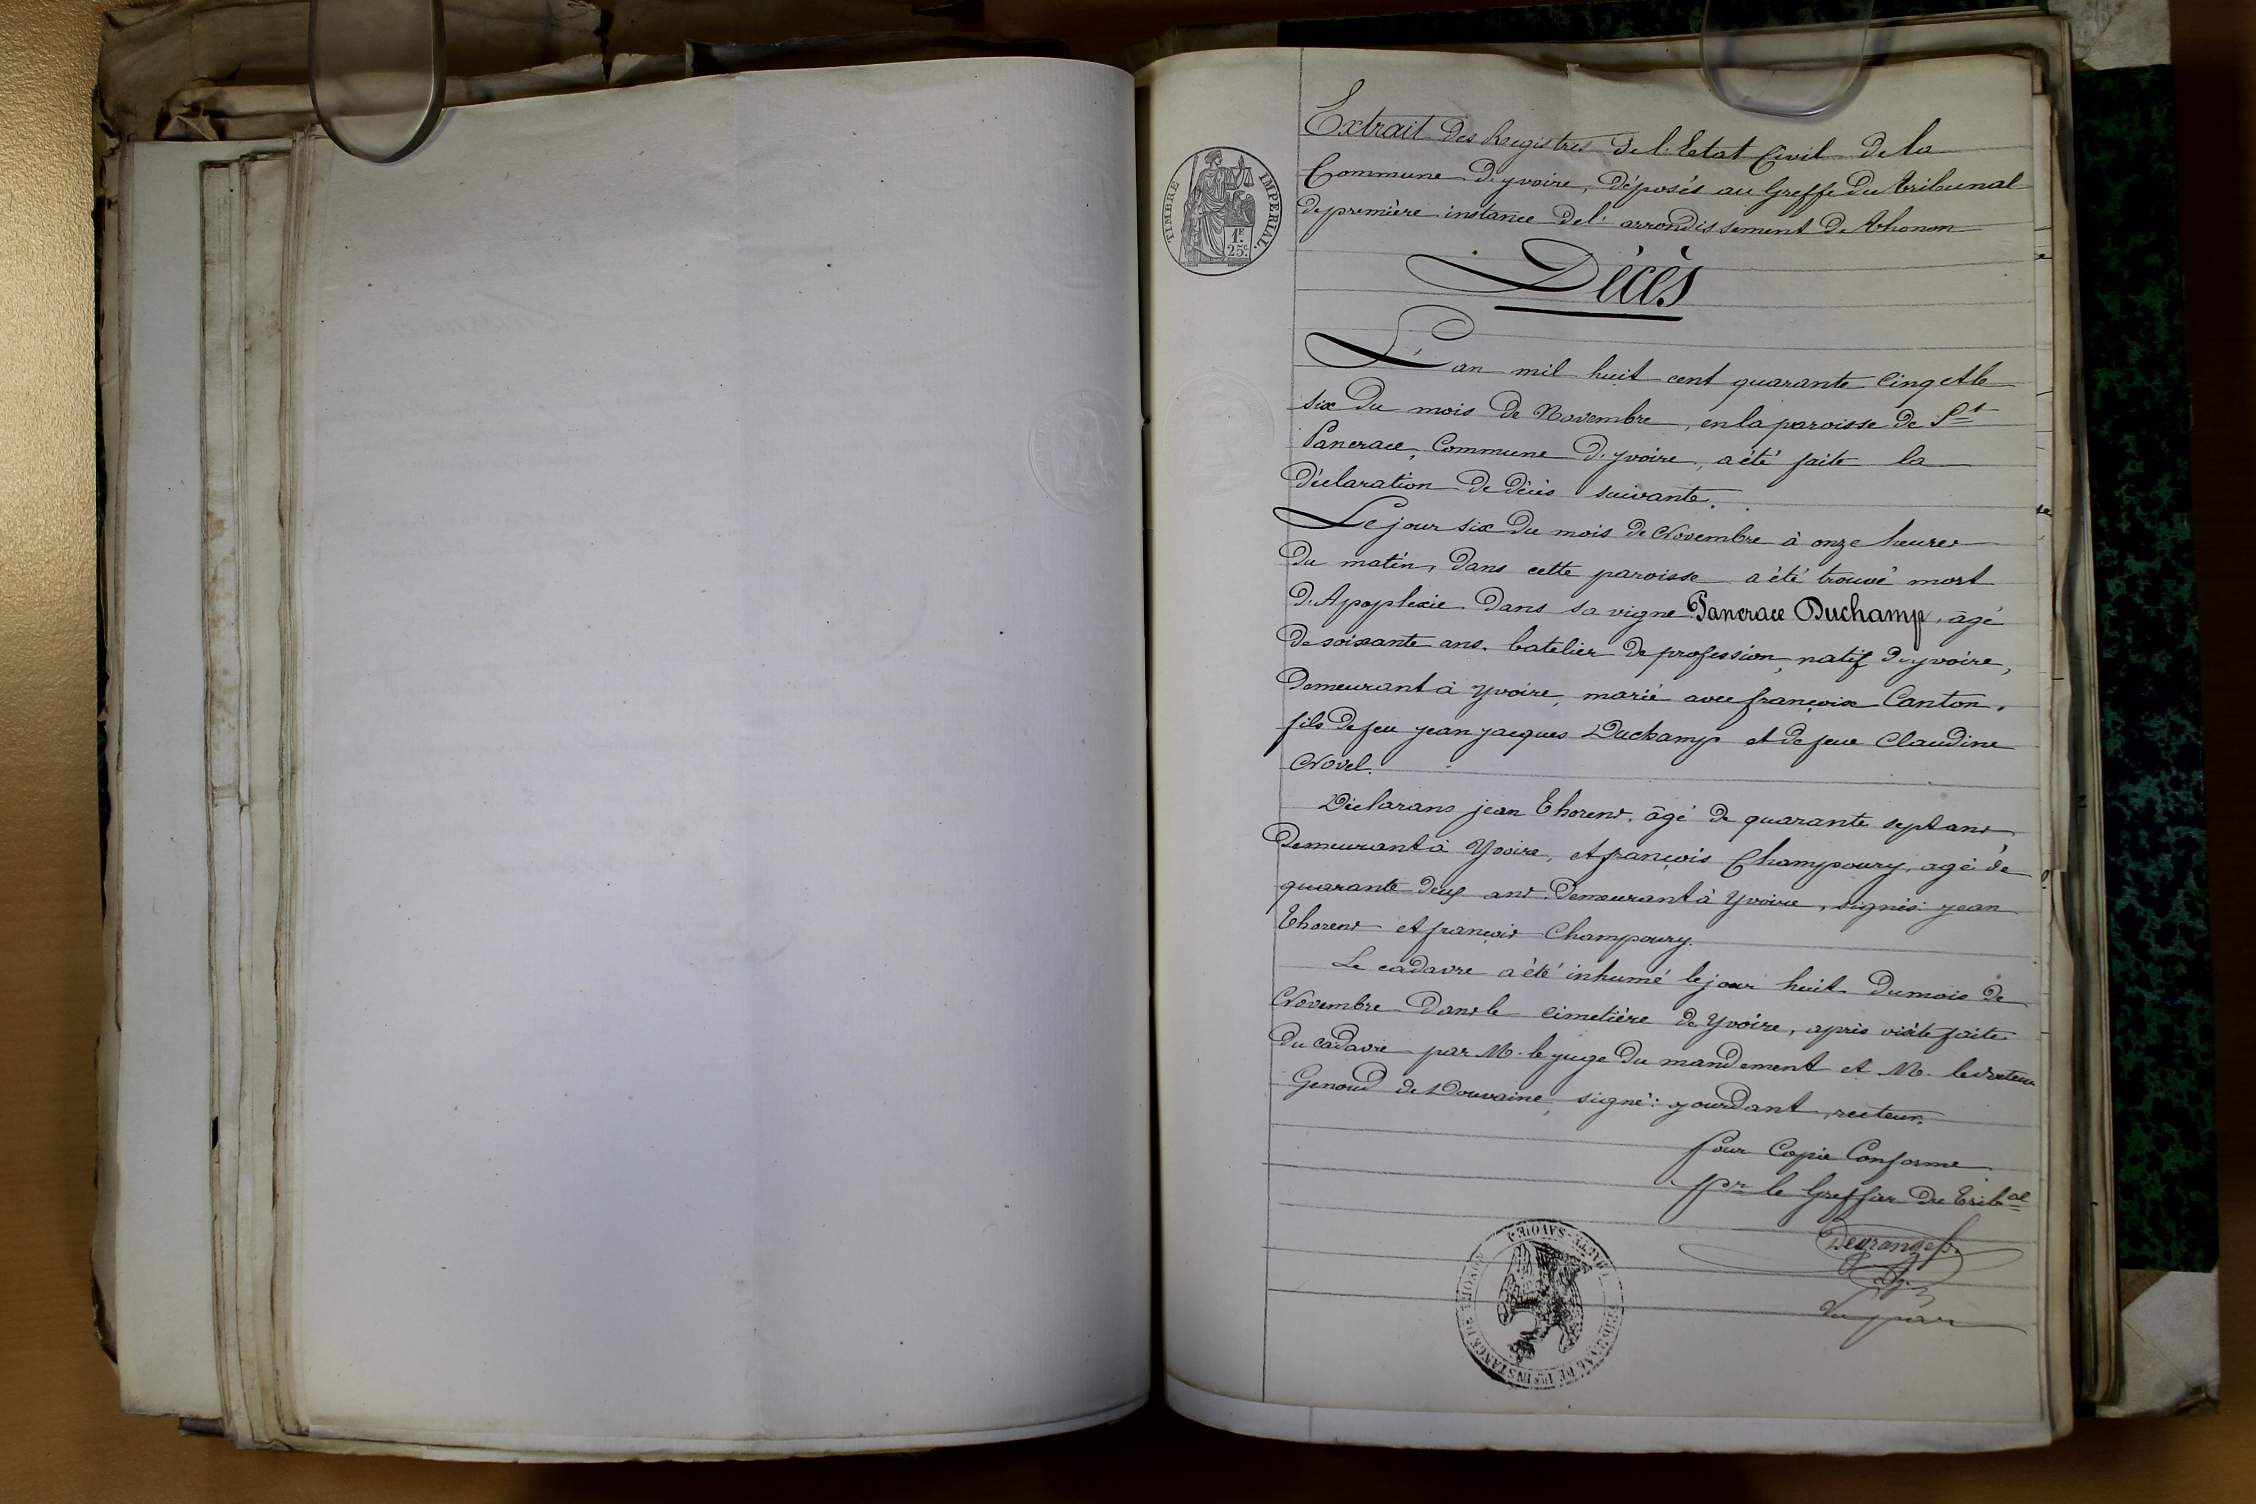 TIMBRE IMPERIAL.
1F. 25c.
Extrait des Registres de l'Etat Civil de la
Commune d'yvoire, déposés au Greffe du tribunal
de première instance de l'arrondissement de thonon
Décès
L'an mil huit cent quarante cinq et le
six du mois de Novembre, en la paroisse de St
Pancrace, Commune d'yvoire, a été faite la
déclaration de décès suivante.
Le jour six du mois de Novembre à onze heures
du matin, dans cette paroisse a été trouvé mort
d'Apoplexie dans sa vigne Pancrace Duchamp, âgé
de soixante ans, batelier de profession, natif d'yvoire,
demeurant à yvoire, marié avec françoise Canton,
fils de feu jean jacques Duchamp et de feue Claudine
Novel.
Déclarans jean Thorens, âgé de quarante sept ans
demeurant à Yvoire, et françois Champoury, agé de
quarante deux ans, demeurant à Yvoire, signés: jean
Thorens et françois Champoury.
Le cadavre a été inhumé le jour huit du mois de
Novembre dans le cimetière de Yvoire, après visite faite
du cadavre par M. le juge du mandement et M. le
Genoud de Douvaine, signé: jourdant, recteur.
Pour Copie Conforme
pr le Greffier du Tribal
TRIBUNAL DE 1RE INSTANCE DE THONON
HAUTE-SAVOIE